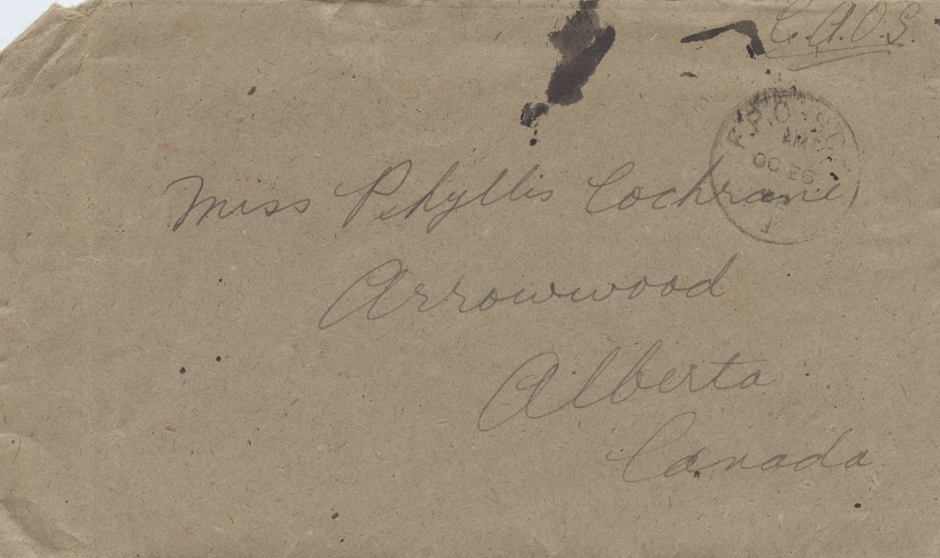 C.A.O.S.
AM
OC 26
Miss Phyllis Cochrane,
Arrowwood
Alberta
Canada